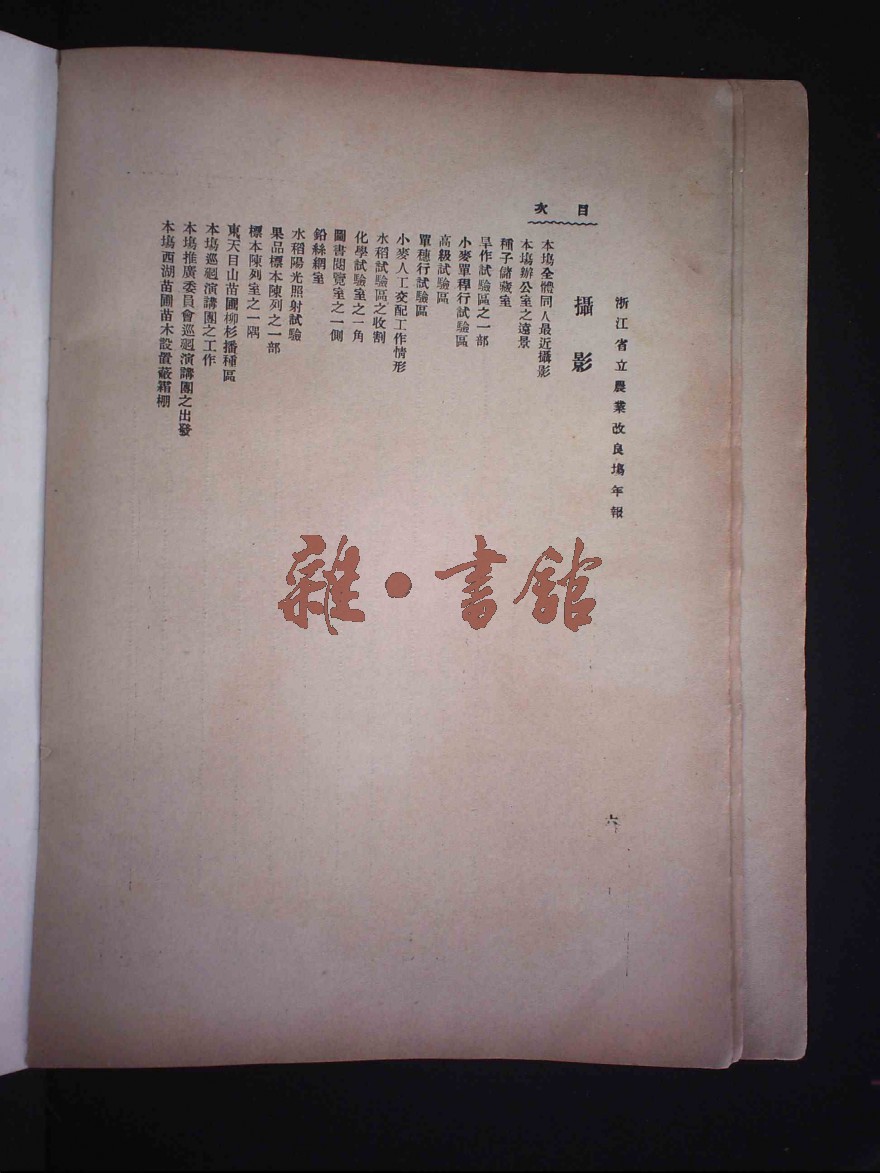 浙江省立農業改良場年報
目次
攝影
本場全體同人最近攝影
本場辦公室之遠景
種子儲藏室
旱作試驗區之一部
小麥單稈行試驗區
高級試驗區
單穗行試驗區
小麥人工交配工作情形
水稻試驗區之收割
化學試驗室之一角
圖書閱覽室之一側
鉛絲網室
水稻陽光照射試驗
果品標本陳列之一部
標本陳列室之一隅
東天目山苗圃柳杉播種區
本場巡迴演講團之工作
本場推廣委員會巡迴演講團之出發
本場西湖苗圃苗木設置蔽霜棚
六
雜·書館